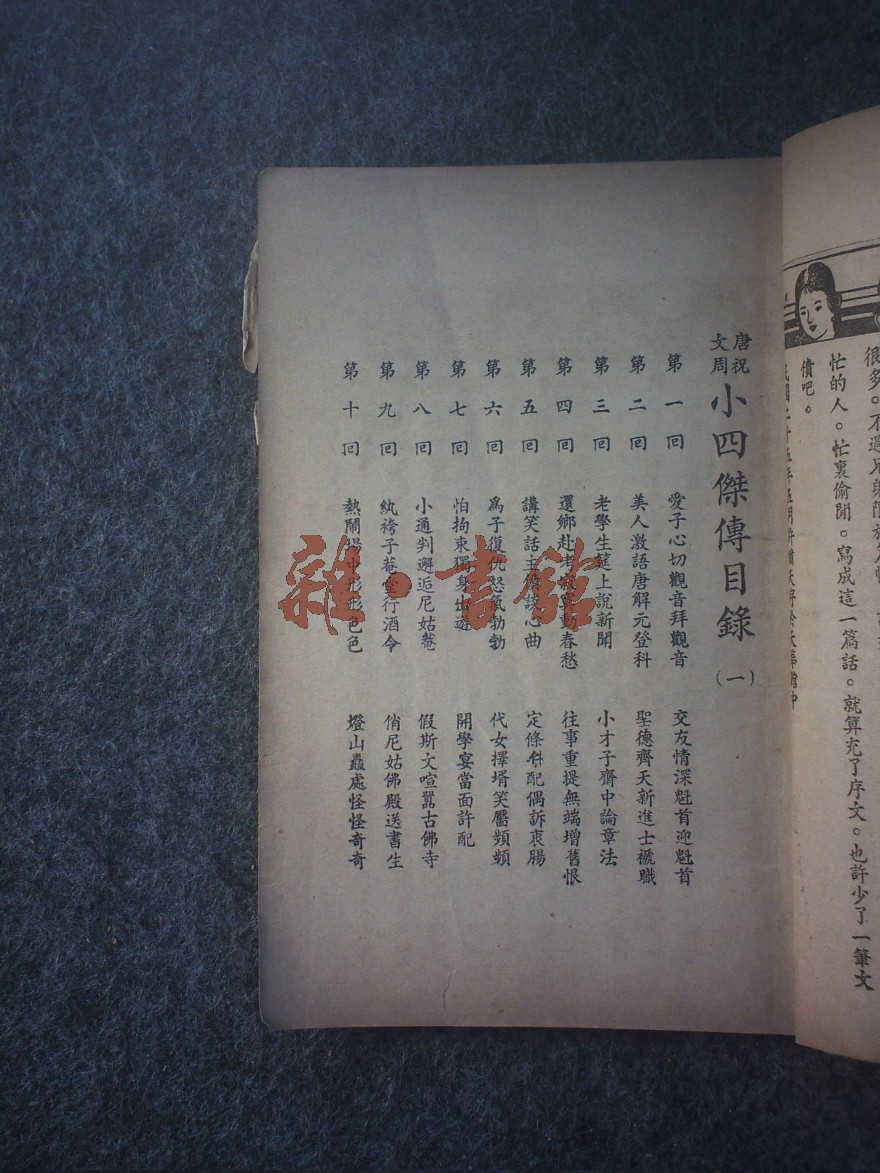 很多。不過
忙的人。忙裏偷閒。寫成這一篇話。就算充了序文。也許少了一筆文
債吧。
唐祝
文周
小四傑傳目錄
(一)
第一回 愛子心切觀音拜觀音 交友情深魁首迎魁首
第二回 美人激語唐解元登科 聖德齊天新進士褫職
第三回 老學生筵上說新聞 小才子齋中論章法
第四回 還鄉赴 動春愁 往事重提無端增舊恨
第五回 講笑話 談心曲 定條件配偶訴衷腸
第六回 爲子復仇怒氣勃勃 代女擇壻笑靨頻頻
第七回 怕拘束獨身出遊 開學宴當面許配
第八回 小通判邂逅尼姑菴 假斯文喧囂古佛寺
第九回 紈袴子菴堂行酒令 俏尼姑佛殿送書生
第十回 熱鬧場中形形色色 燈山矗處怪怪奇奇
雜·書館